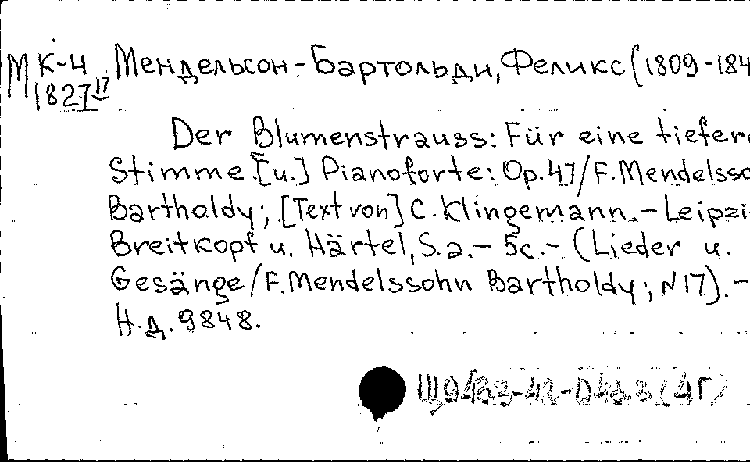 М К-4 Мендельсон-Бартольди, Феликс (1809-184
1827 17
Der Blumenstrauss: Für eine tiefere
Stimme [u.] Pianoforte: Op.47/F.Mendelsso
Bartholdy; [Text von] C. Klingemann.-Leipzi
Breitkopf u. Härtel, S.a.- 5c.- (Lieder u.
Gesänge/F.Mendelssohn Bartholdy; N17).-
Н.д.9848.